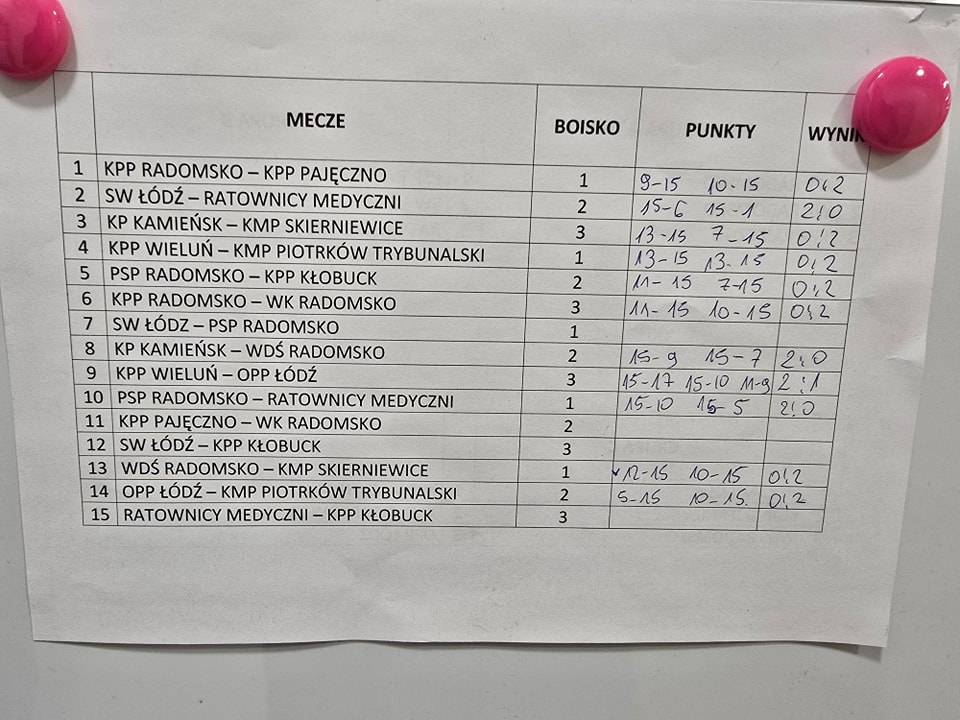 MECZE BOISKO PUNKTY WYNIK
1 KPP RADOMSKO – KPP PAJĘCZNO 1 9-15 10-15 0:2
2 SW ŁÓDŹ – RATOWNICY MEDYCZNI 2 15-6 15-1 2:0
3 KP KAMIEŃSK – KMP SKIERNIEWICE 3 13-15 7-15 0:2
4 KPP WIELUŃ – KMP PIOTRKÓW TRYBUNALSKI 1 13-15 13-15 0:2
5 PSP RADOMSKO – KPP KŁOBUCK 2 11-15 7-15 0:2
6 KPP RADOMSKO – WK RADOMSKO 3 11-15 10-15 0:2
7 SW ŁÓDZ – PSP RADOMSKO 1
8 KP KAMIEŃSK – WDŚ RADOMSKO 2 15-9 15-7 2:0
9 KPP WIELUŃ – OPP ŁÓDŹ 3 15-17 15-10 11-9 2:1
10 PSP RADOMSKO – RATOWNICY MEDYCZNI 1 15-10 15-5 2:0
11 KPP PAJĘCZNO – WK RADOMSKO 2
12 SW ŁÓDŹ – KPP KŁOBUCK 3
13 WDŚ RADOMSKO – KMP SKIERNIEWICE 1 12-15 10-15 0:2
14 OPP ŁÓDŹ – KMP PIOTRKÓW TRYBUNALSKI 2 5-15 10-15. 0:2
15 RATOWNICY MEDYCZNI – KPP KŁOBUCK 3